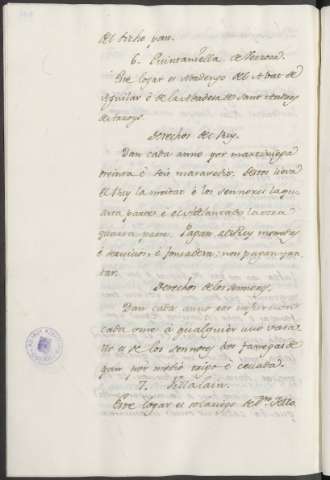 del dicho pan.
6. Quintaniella de
Este logar es Abadengo del Abat de
Aguilar è de la Abadesa de Sant Andres
de Arroyo
Derechos del Rey.
Dan cada anno por martiniega
treinta è seis maravedis. destos lieva
el Rey la meitat è los sennores la qu-
arta parte, è el Adelantado la otra
quarta parte. Pagan al Rey monedas
è servicios, è fonsadera; non pagan yan-
tar.
Derechos de los sennores.
Dan cada anno por infurcion
cada uno à qualquier uno vasa-
llo de los sennores dos fanegas de
pan por medio trigo è cevada.
7. Villalain.
Este logar es solariego de Dn. Tello